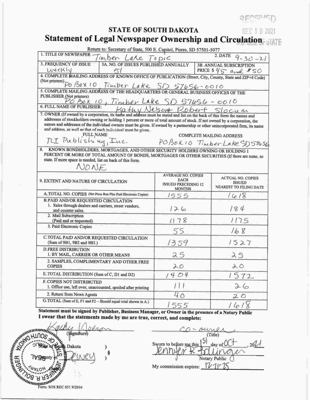 RECEIVED
DEC 3 2021
STATE OF SOUTH DAKOTA
Statement of Legal Newspaper Ownership and Circulation
Return to: Secretary of State, 500 E. Capitol, Pierre, SD 57501-5077
1. TITLE OF NEWSPAPER Timber Lake Topic 2. DATE 9-30-21
3. FREQUENCY OF ISSUE weekly 3A. NO. OF ISSUES PUBLISHED ANNUALLY 51 3B. ANNUAL SUBSCRIPTION PRICE $ 45 and $50
4. COMPLETE MAILING ADDRESS OF KNOWN OFFICE OF PUBLICATION (Street, City, County, State and ZIP+4 Code) (Not printers)
PO Box 10 Timber Lake SD 57656-0010
5. COMPLETE MAILING ADDRESS OF THE HEADQUARTERS OR GENERAL BUSINESS OFFICES OF THE PUBLISHER (Not printer)
PO Box 10, Timber Lake SD 57656-0010
6. FULL NAME OF PUBLISHER: Kathy Nelson Robert Slocum
7. OWNER (If owned by a corporation, its name and address must be stated and list on the back of this form the names and
addresses of stockholders owning or holding 1 percent or more of total amount of stock. If not owned by a corporation, the
names and addresses of the individual owners must be given. If owned by a partnership or other unincorporated firm, its name
and address, as well as that of each individual must be given.
FULL NAME COMPLETE MAILING ADDRESS
TLT Publishing, Inc. PO Box 10 Timber Lake SD 57656
8. KNOWN BONDHOLDERS, MORTGAGES, AND OTHER SECURITY HOLDERS OWNING OR HOLDING 1
PERCENT OR MORE OF TOTAL AMOUNT OF BONDS, MORTGAGES OR OTHER SECURITIES (If there are none, so
state. If more space is needed, list on back of this form.
NONE
9. EXTENT AND NATURE OF CIRCULATION AVERAGE NO. COPIES EACH ISSUED PRECEDING 12 MONTHS ACTUAL NO. COPIES ISSUED NEAREST TO FILING DATE
A. TOTAL NO. COPIES (Net Press Run Plus Paid Electronic Copies) 1555 1618
B. PAID AND/OR REQUESTED CIRCULATION
1. Sales through dealers and carriers, street vendors, and counter sales. 126 184
2. Mail Subscription (Paid and or requested) 1178 1175
3. Paid Electronic Copies 55 168
C. TOTAL PAID AND/OR REQUESTED CIRCULATION (Sum of 9B1, 9B2 and 9B3.) 1359 1527
D. FREE DISTRIBUTION
1. BY MAIL, CARRIER OR OTHER MEANS 25 25
2. SAMPLES, COMPLIMENTARY AND OTHER FREE COPIES 20 20
E. TOTAL DISTRIBUTION (Sum of C, D1 and D2) 1404 1572
F. COPIES NOT DISTRIBUTED
1. Office use, left over, unaccounted, spoiled after printing 111 26
2. Return from News Agents 40 20
G. TOTAL (Sum of E, F1 and F2 – Should equal total shown in A.) 1555 1618
Statement must be signed by Publisher, Business Manager, or Owner in the presence of a Notary Public
I swear that the statements made by me are true, correct, and complete:
Kathy Nelson co-owner
(Signature) (Title)
State of South Dakota ) Sworn to before me this 1st day of Oct 2021
Dewey
Notary Public
My commission expires: